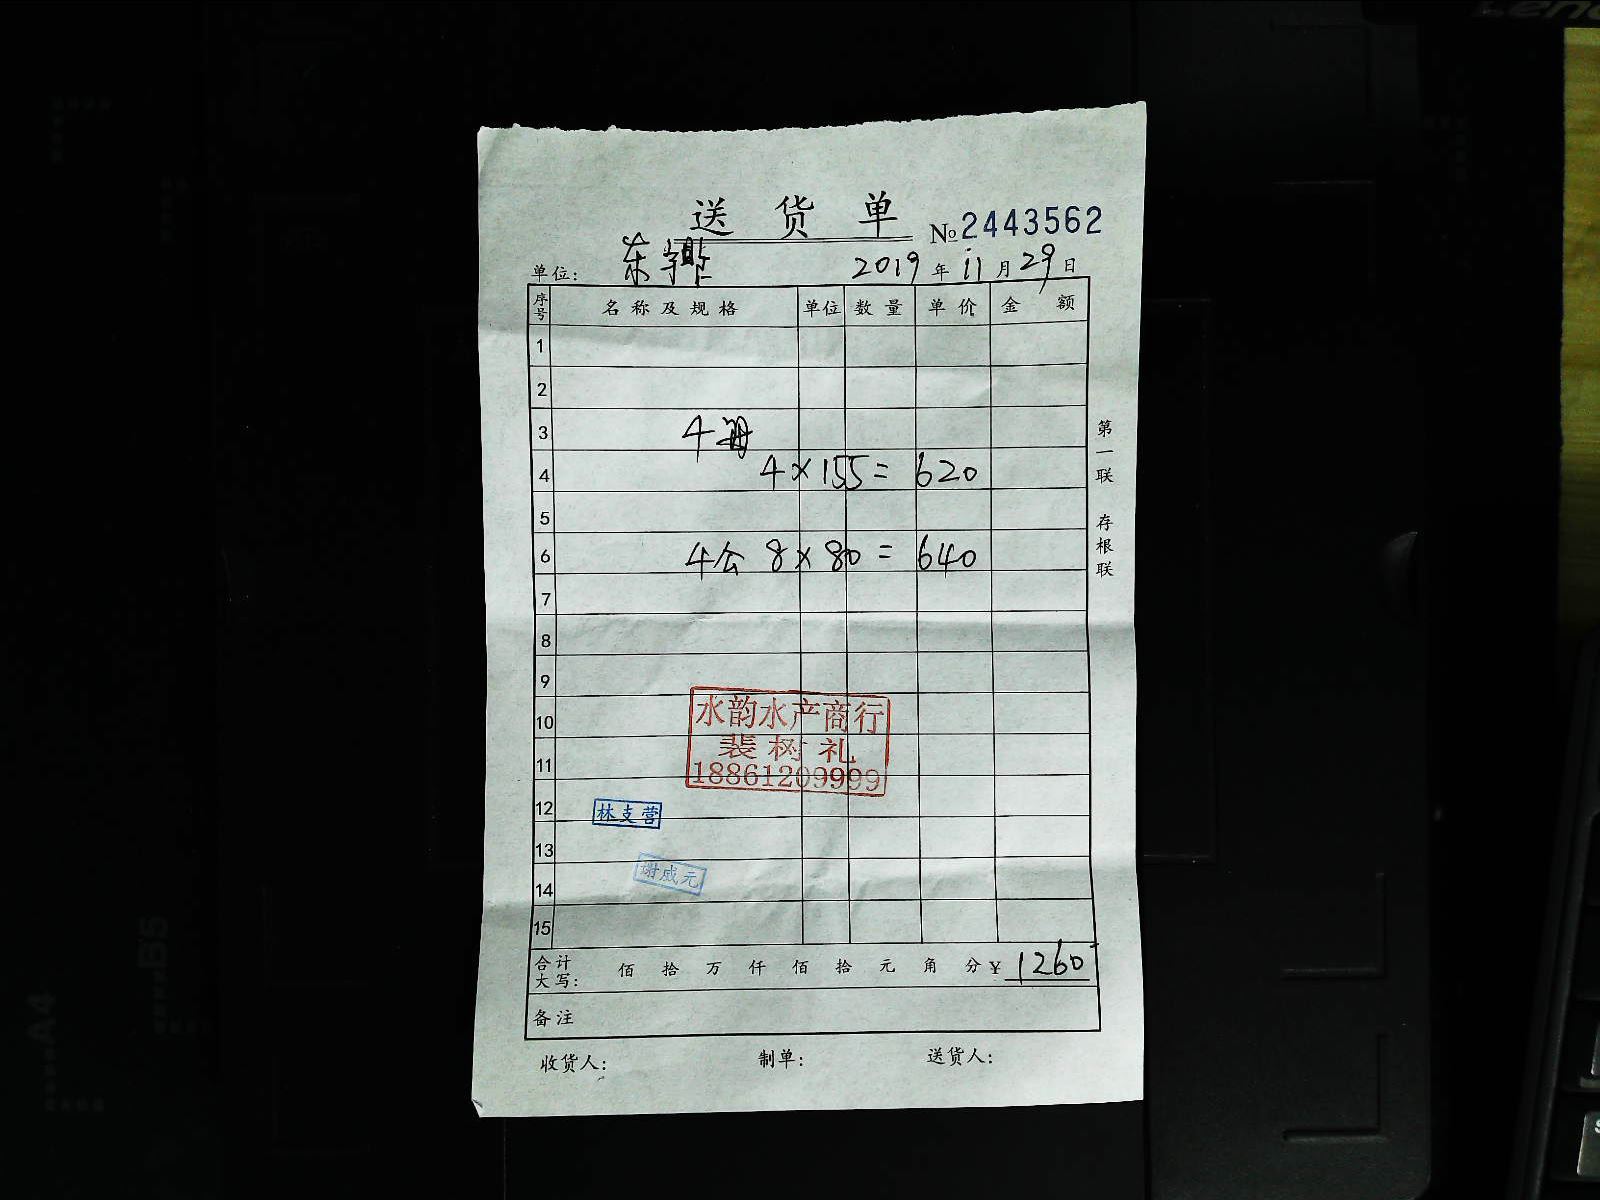 送 货 单
№2443562
单位: 东
2019 年 11 月 29 日
序号 名称及规格 单位 数量 单价 金额
1
2
3 4
4 4×155= 620
5
6 4公 8×80 = 640
7
8
9
10
11
12
13
14
15
水韵水产商行
裴树礼
18861209999
林支营
谢成元
合计大写: 佰 拾 万 仟 佰 拾 元 角 分 ¥ 1260
备注
收货人: 制单: 送货人:
第一联 存根联
A4
B5